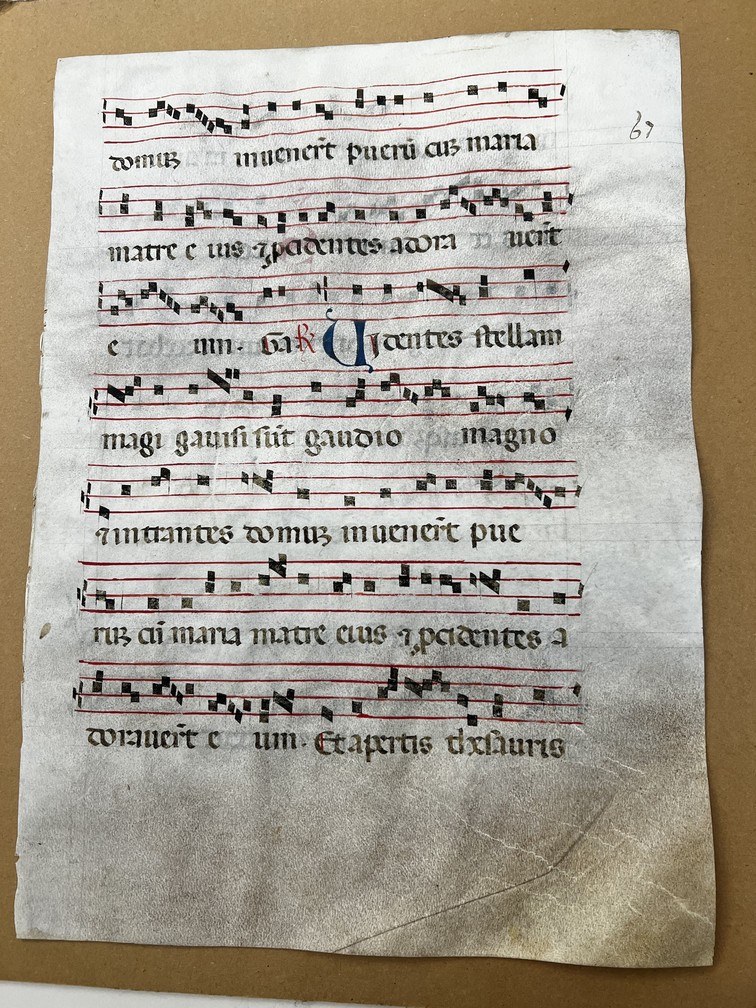 domuʒ inuener̄t puerū cuʒ maria
67
matre e ius ⁊ ꝓcidentes adora uer̄t
e um. Ga ℟ Uidentes stellam
magi gauisi sūt gaudio magno
⁊ intrantes domuʒ inuener̄t pue
ruʒ cū maria matre eius ⁊ ꝓcidentes a
dorauer̄t e um. Et apertis thesauris